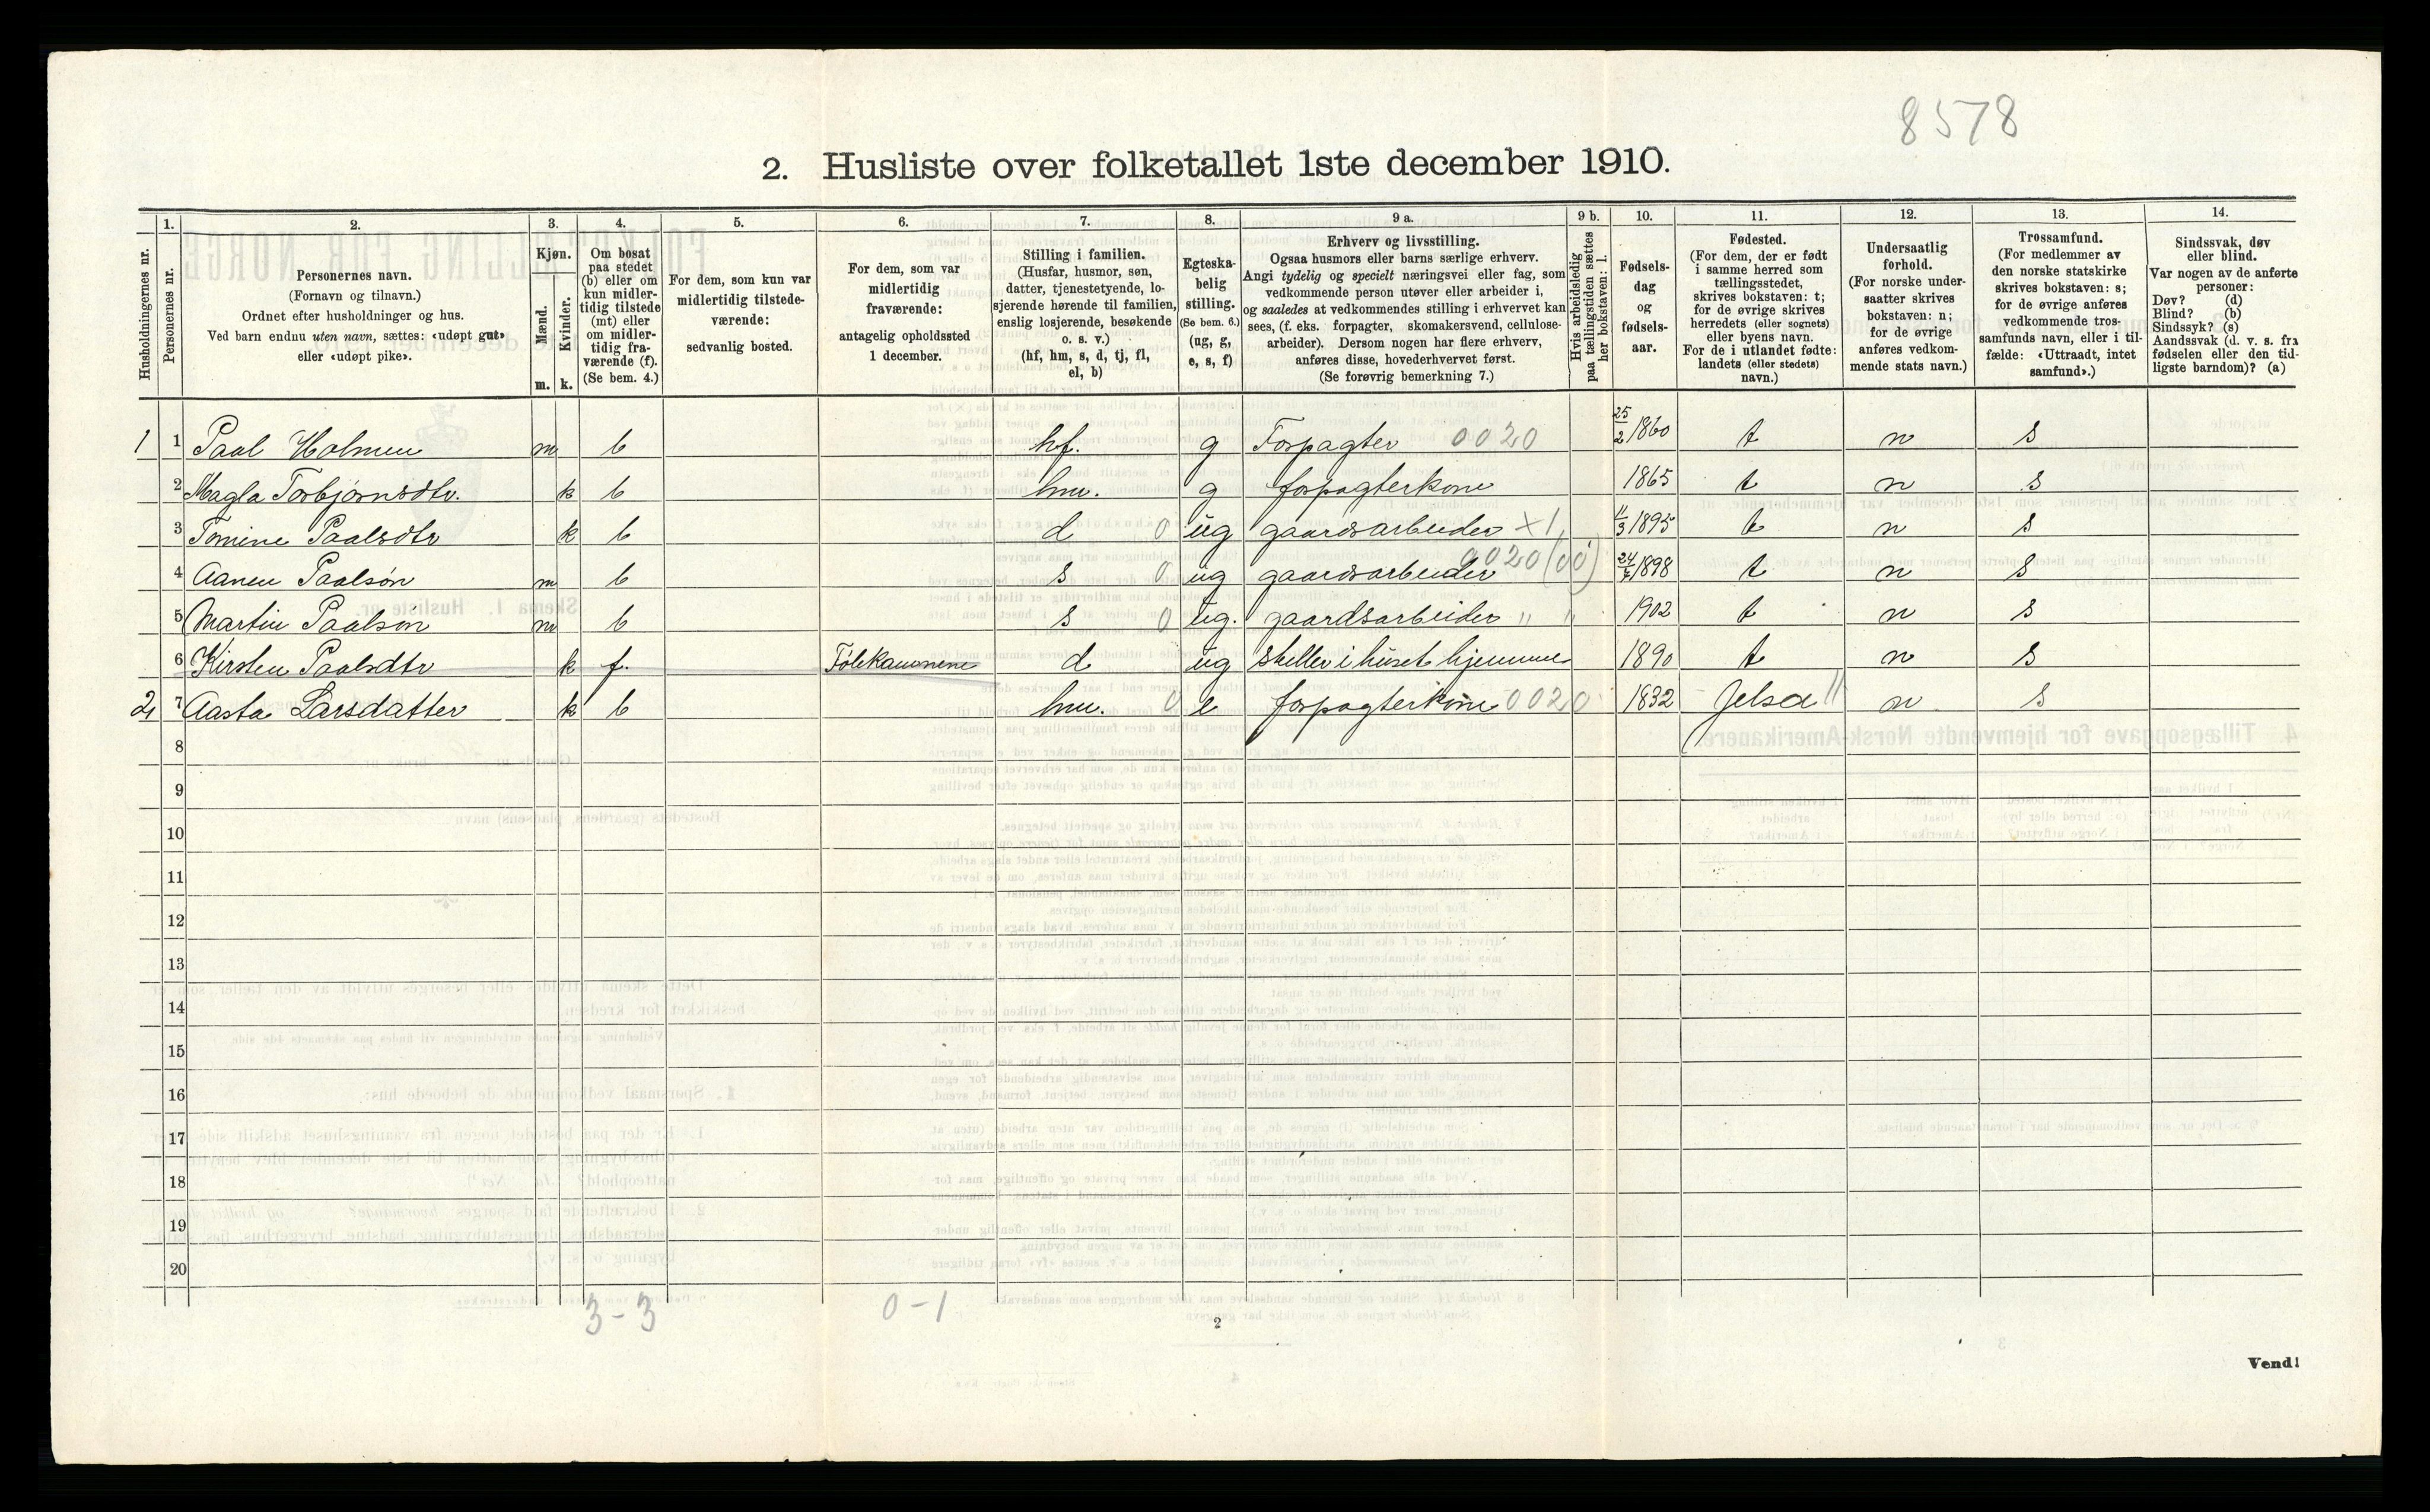 8578
2. Husliste over folketallet 1ste december 1910.
Husholdningernes nr.
1.
Personernes nr.
2.
Personernes navn.
(Fornavn og tilnavn.)
Ordnet efter husholdninger og hus.
Ved barn endnu uten navn, sættes: «udøpt gut»
eller «udøpt pike».
3.
Kjøn.
Mænd.
Kvinder.
m. k.
4.
Om bosat
paa stedet
(b) eller om
kun midler-
tidig tilstede
(mt) eller
om midler-
tidig fra-
værende (f).
(Se bem. 4.)
5.
For dem, som kun var
midlertidig tilstede-
værende:
sedvanlig bosted.
6.
For dem, som var
midlertidig
fraværende:
antagelig opholdssted
1 december.
7.
Stilling i familien.
(Husfar, husmor, søn,
datter, tjenestetyende, lo-
sjerende hørende til familien,
enslig losjerende, besøkende
o. s. v.)
(hf, hm, s, d, tj, fl,
el, b)
8.
Egteska-
belig
stilling.
(Se bem. 6.)
(ug, g,
e, s, f)
9 a.
Erhverv og livsstilling.
Ogsaa husmors eller barns særlige erhverv.
Angi tydelig og specielt næringsvei eller fag, som
vedkommende person utøver eller arbeider i,
og saaledes at vedkommendes stilling i erhvervet kan
sees, (f. eks. forpagter, skomakersvend, cellulose-
arbeider). Dersom nogen har flere erhverv,
anføres disse, hovederhvervet først.
(Se forøvrig bemerkning 7.)
9 b.
Hvis arbeidsledig
paa tællingstiden sættes
her bokstaven: l.
10.
Fødsels-
dag
og
fødsels-
aar.
11.
Fødested.
(For dem, der er født
i samme herred som
tællingsstedet,
skrives bokstaven: t;
for de øvrige skrives
herredets (eller sognets)
eller byens navn.
For de i utlandet fødte:
landets (eller stedets)
navn.)
12.
Undersaatlig
forhold.
(For norske under-
saatter skrives
bokstaven: n;
for de øvrige
anføres vedkom-
mende stats navn.)
13.
Trossamfund.
(For medlemmer av
den norske statskirke
skrives bokstaven: s;
for de øvrige anføres
vedkommende tros-
samfunds navn, eller i til-
fælde: «Uttraadt, intet
samfund».)
14.
Sindssvak, døv
eller blind.
Var nogen av de anførte
personer:
Døv? (d)
Blind? (b)
Sindssyk? (s)
Aandssvak (d. v. s. fra
fødselen eller den tid-
ligste barndom)? (a)
1 1 Paal Holmen m b hf. g Forpagter 0020 25/2 1860 t n s
2 Magla Torbjørnsdtr. k b hm. g forpagterkone 1865 t n s
3 Tomine Paalsdtr k b d 0 ug gaardsarbeider x 1 11/3 1895 t n s
4 Aanen Paalsøn m b s 0 ug gaardsarbeider 0020 (00) 1898 t n s
5 Martin Paalsøn m b s 0 ug. gaardsarbeider " " 1902 t n s
6 Kirsten Paalsdtr k f. d ug steller i huset hjemme 1890 t n s
2 7 Aasta Larsdatter k b hm. 0 e forpagterkone 0020 1832 Jelsa n s
8
9
10
11
12
13
14
15
16
17
18
19
20
3-3 0-1
2
Vend!